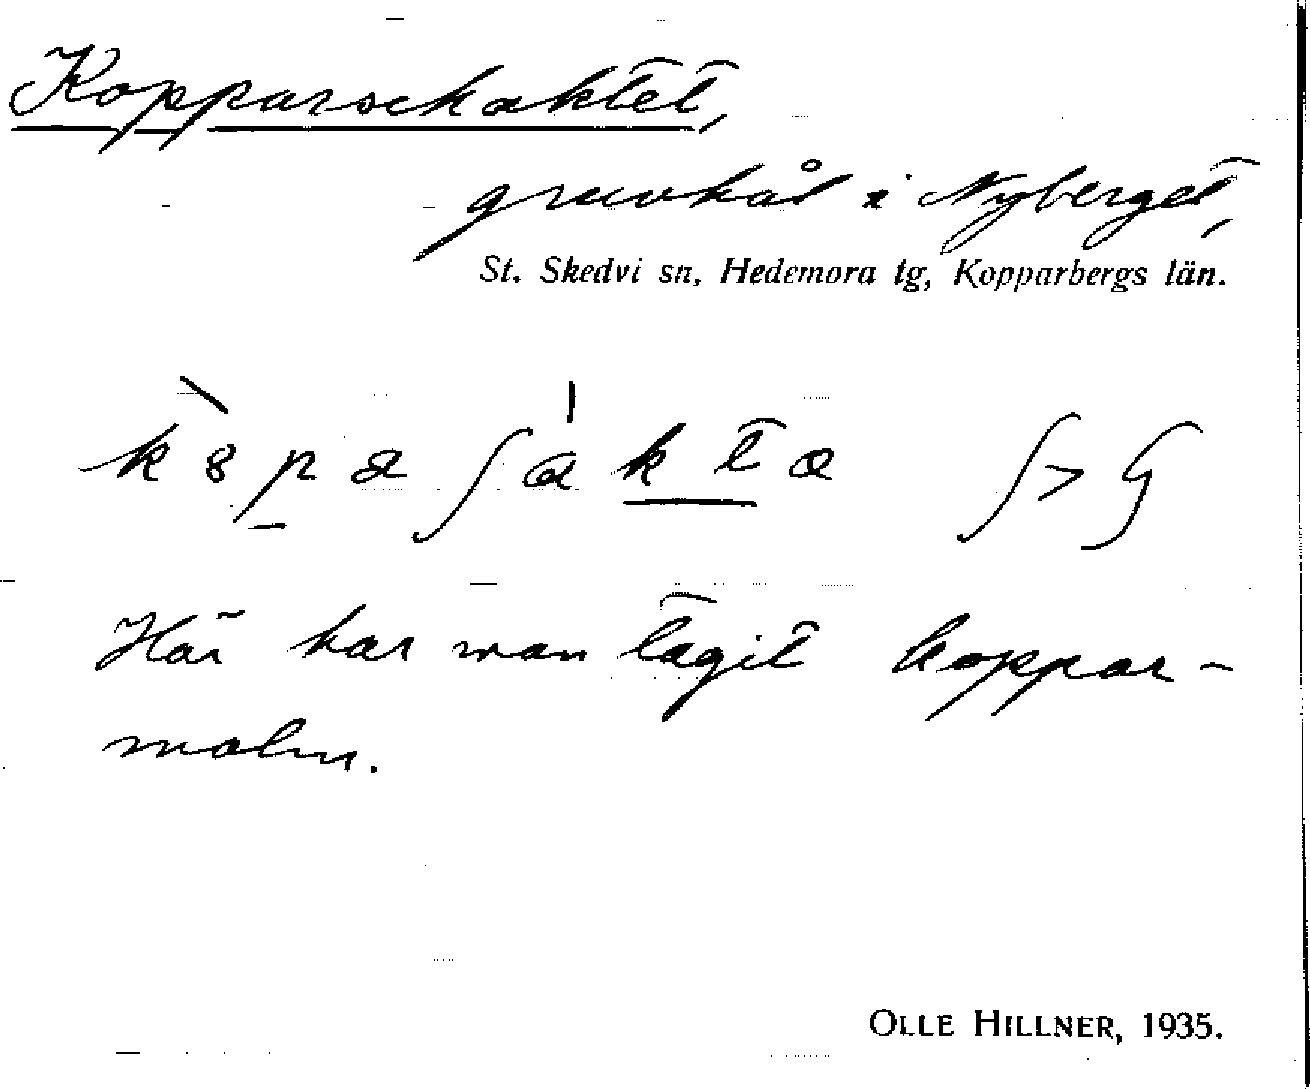 Kopparschaktet,
gruvhål i Nyberget,
St. Skedvi sn, Hedemora tg, Kopparbergs län.
Här har man tagit koppar-
malm.
OLLE HILLNER, 1935.